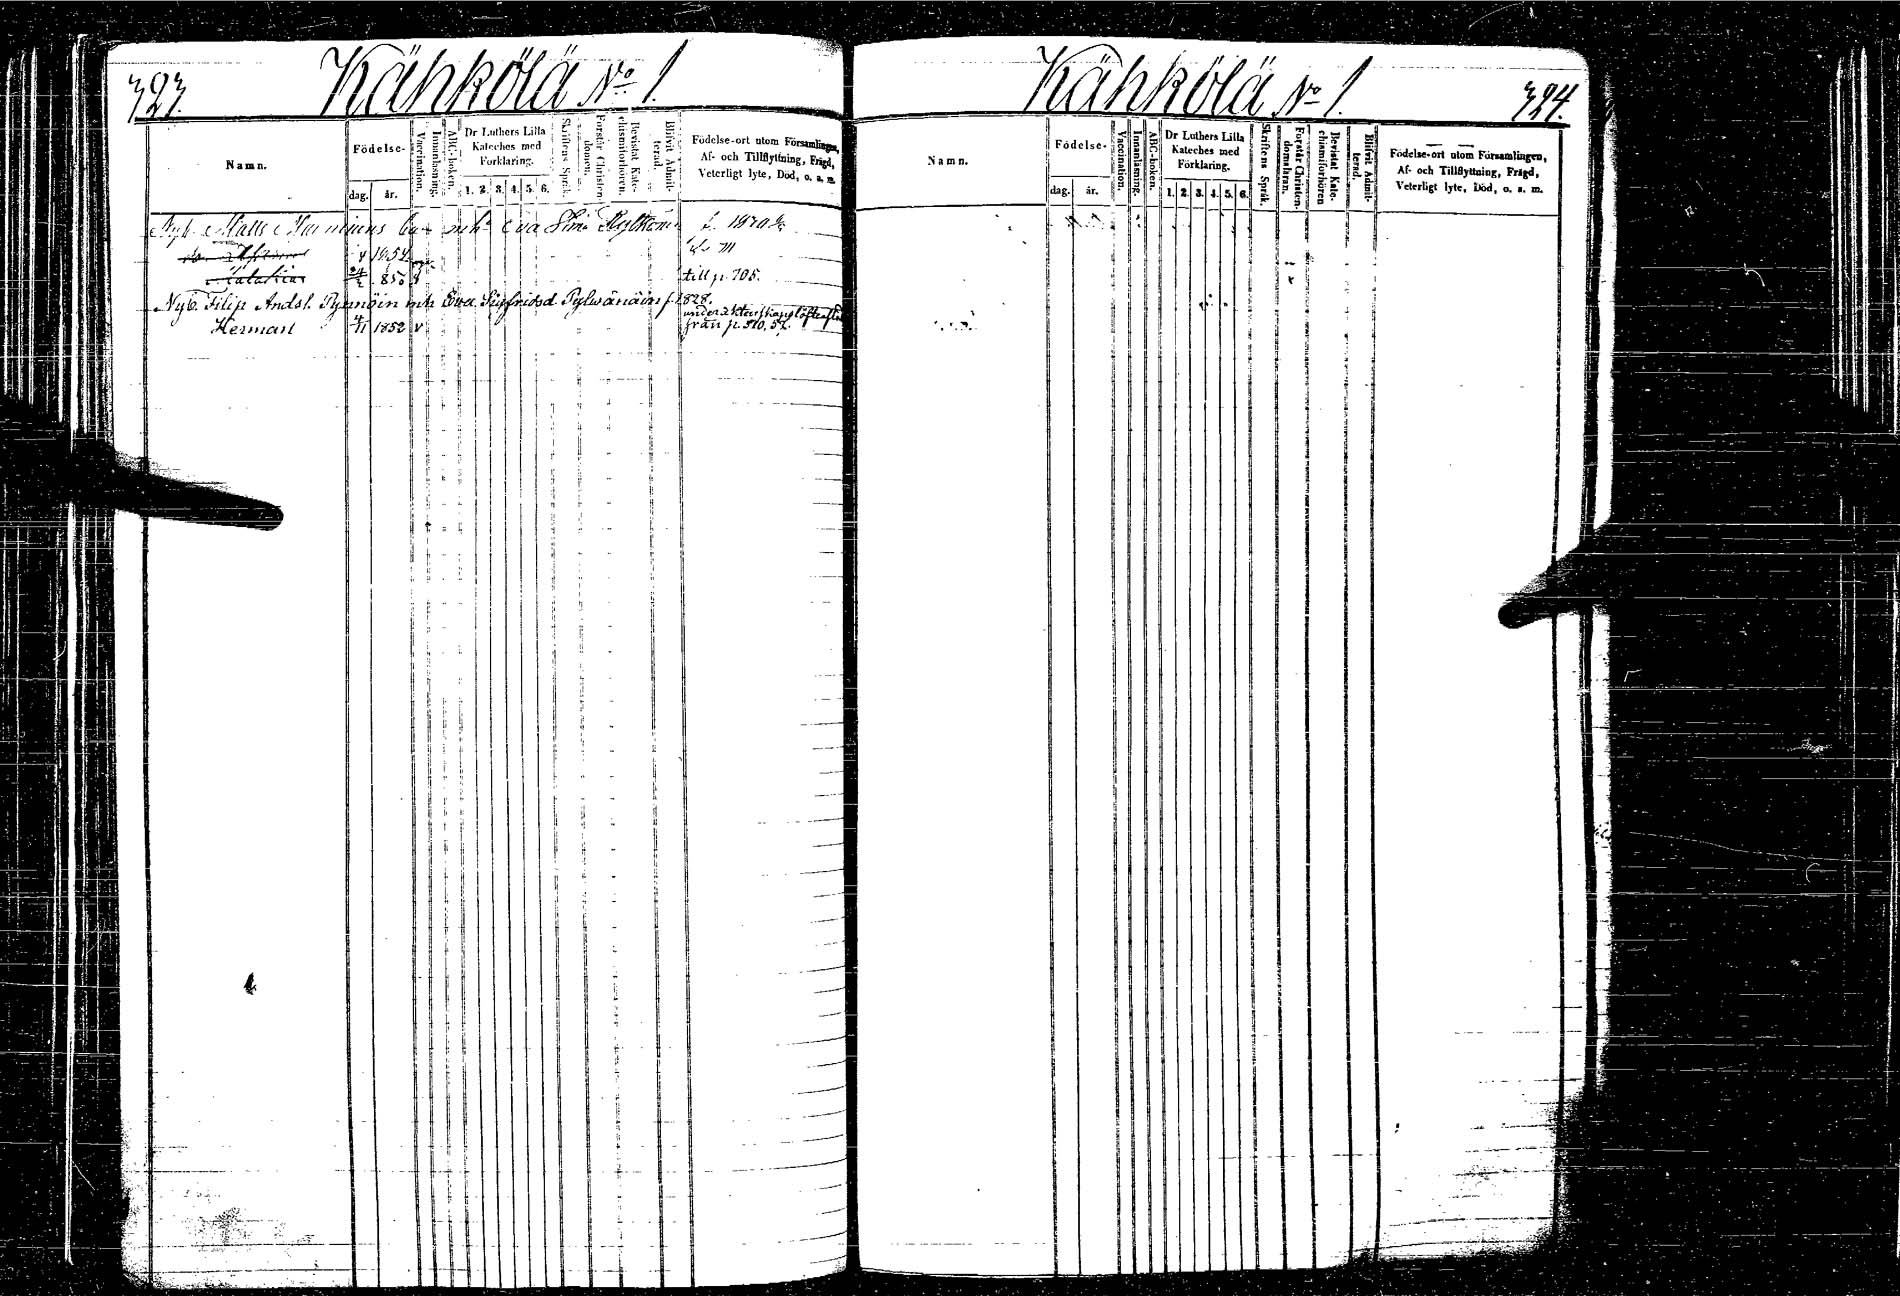 323.
Kähkölä No 1.
Namn.
Födelse-
dag. år.
Vaccination.
Innanläsning.
ABC-boken.
Dr Luthers Lilla
Kateches med
Förklaring.
1. 2. 3. 4. 5. 6.
Skriftens Språk.
Förstår Christen-
domen.
Bevistat Kate-
chismiförhören.
Blifvit Admit-
terad.
Födelse-ort utom Församlingen,
Af- och Tillflyttning, Frägd,
Veterligt lyte, Död, o. a. m.
Matts Eva
1852
till p. 705.
Nyb. Filip Andsl. mh Ewa Sigfridsd f. 1828.
under
Herman 4/11 1852 v från p. 510. 57.
Kähkölä No 1.
324.
Namn.
Födelse-
dag. år.
Vaccination.
Innanläsning.
ABC-boken.
Dr Luthers Lilla
Kateches med
Förklaring.
1. 2. 3. 4. 5. 6.
Skriftens Språk.
Förstår Christen-
domsläran.
Bevistat Kate-
chismiförhören
Blifvit Admit-
terad.
Födelse-ort utom Församlingen,
Af- och Tillflyttning, Frägd,
Veterligt lyte, Död, o. a. m.